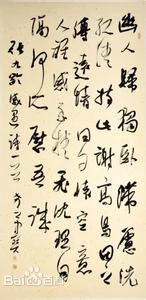 幽人歸獨臥滯慮洗
孤清持此謝高鳥因之
傳遠情日夕懷空意
人誰感至精飛沈理自
隔何所慰吾誠
張九齡感遇詩一首
Bai百科